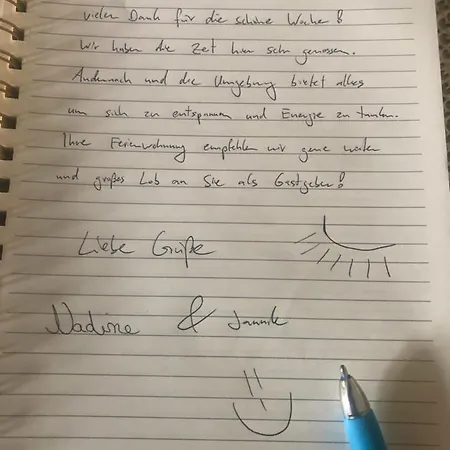 vielen Dank für die schöne Woche!
Wir haben die Zeit hier sehr genossen.
Andernach und die Umgebung bietet alles
um sich zu entspannen und Energie zu tanken.
Ihre Ferienwohnung empfehlen wir gerne weiter
und großes Lob an Sie als Gastgeber!
Liebe Grüße
Nadine & Jannik